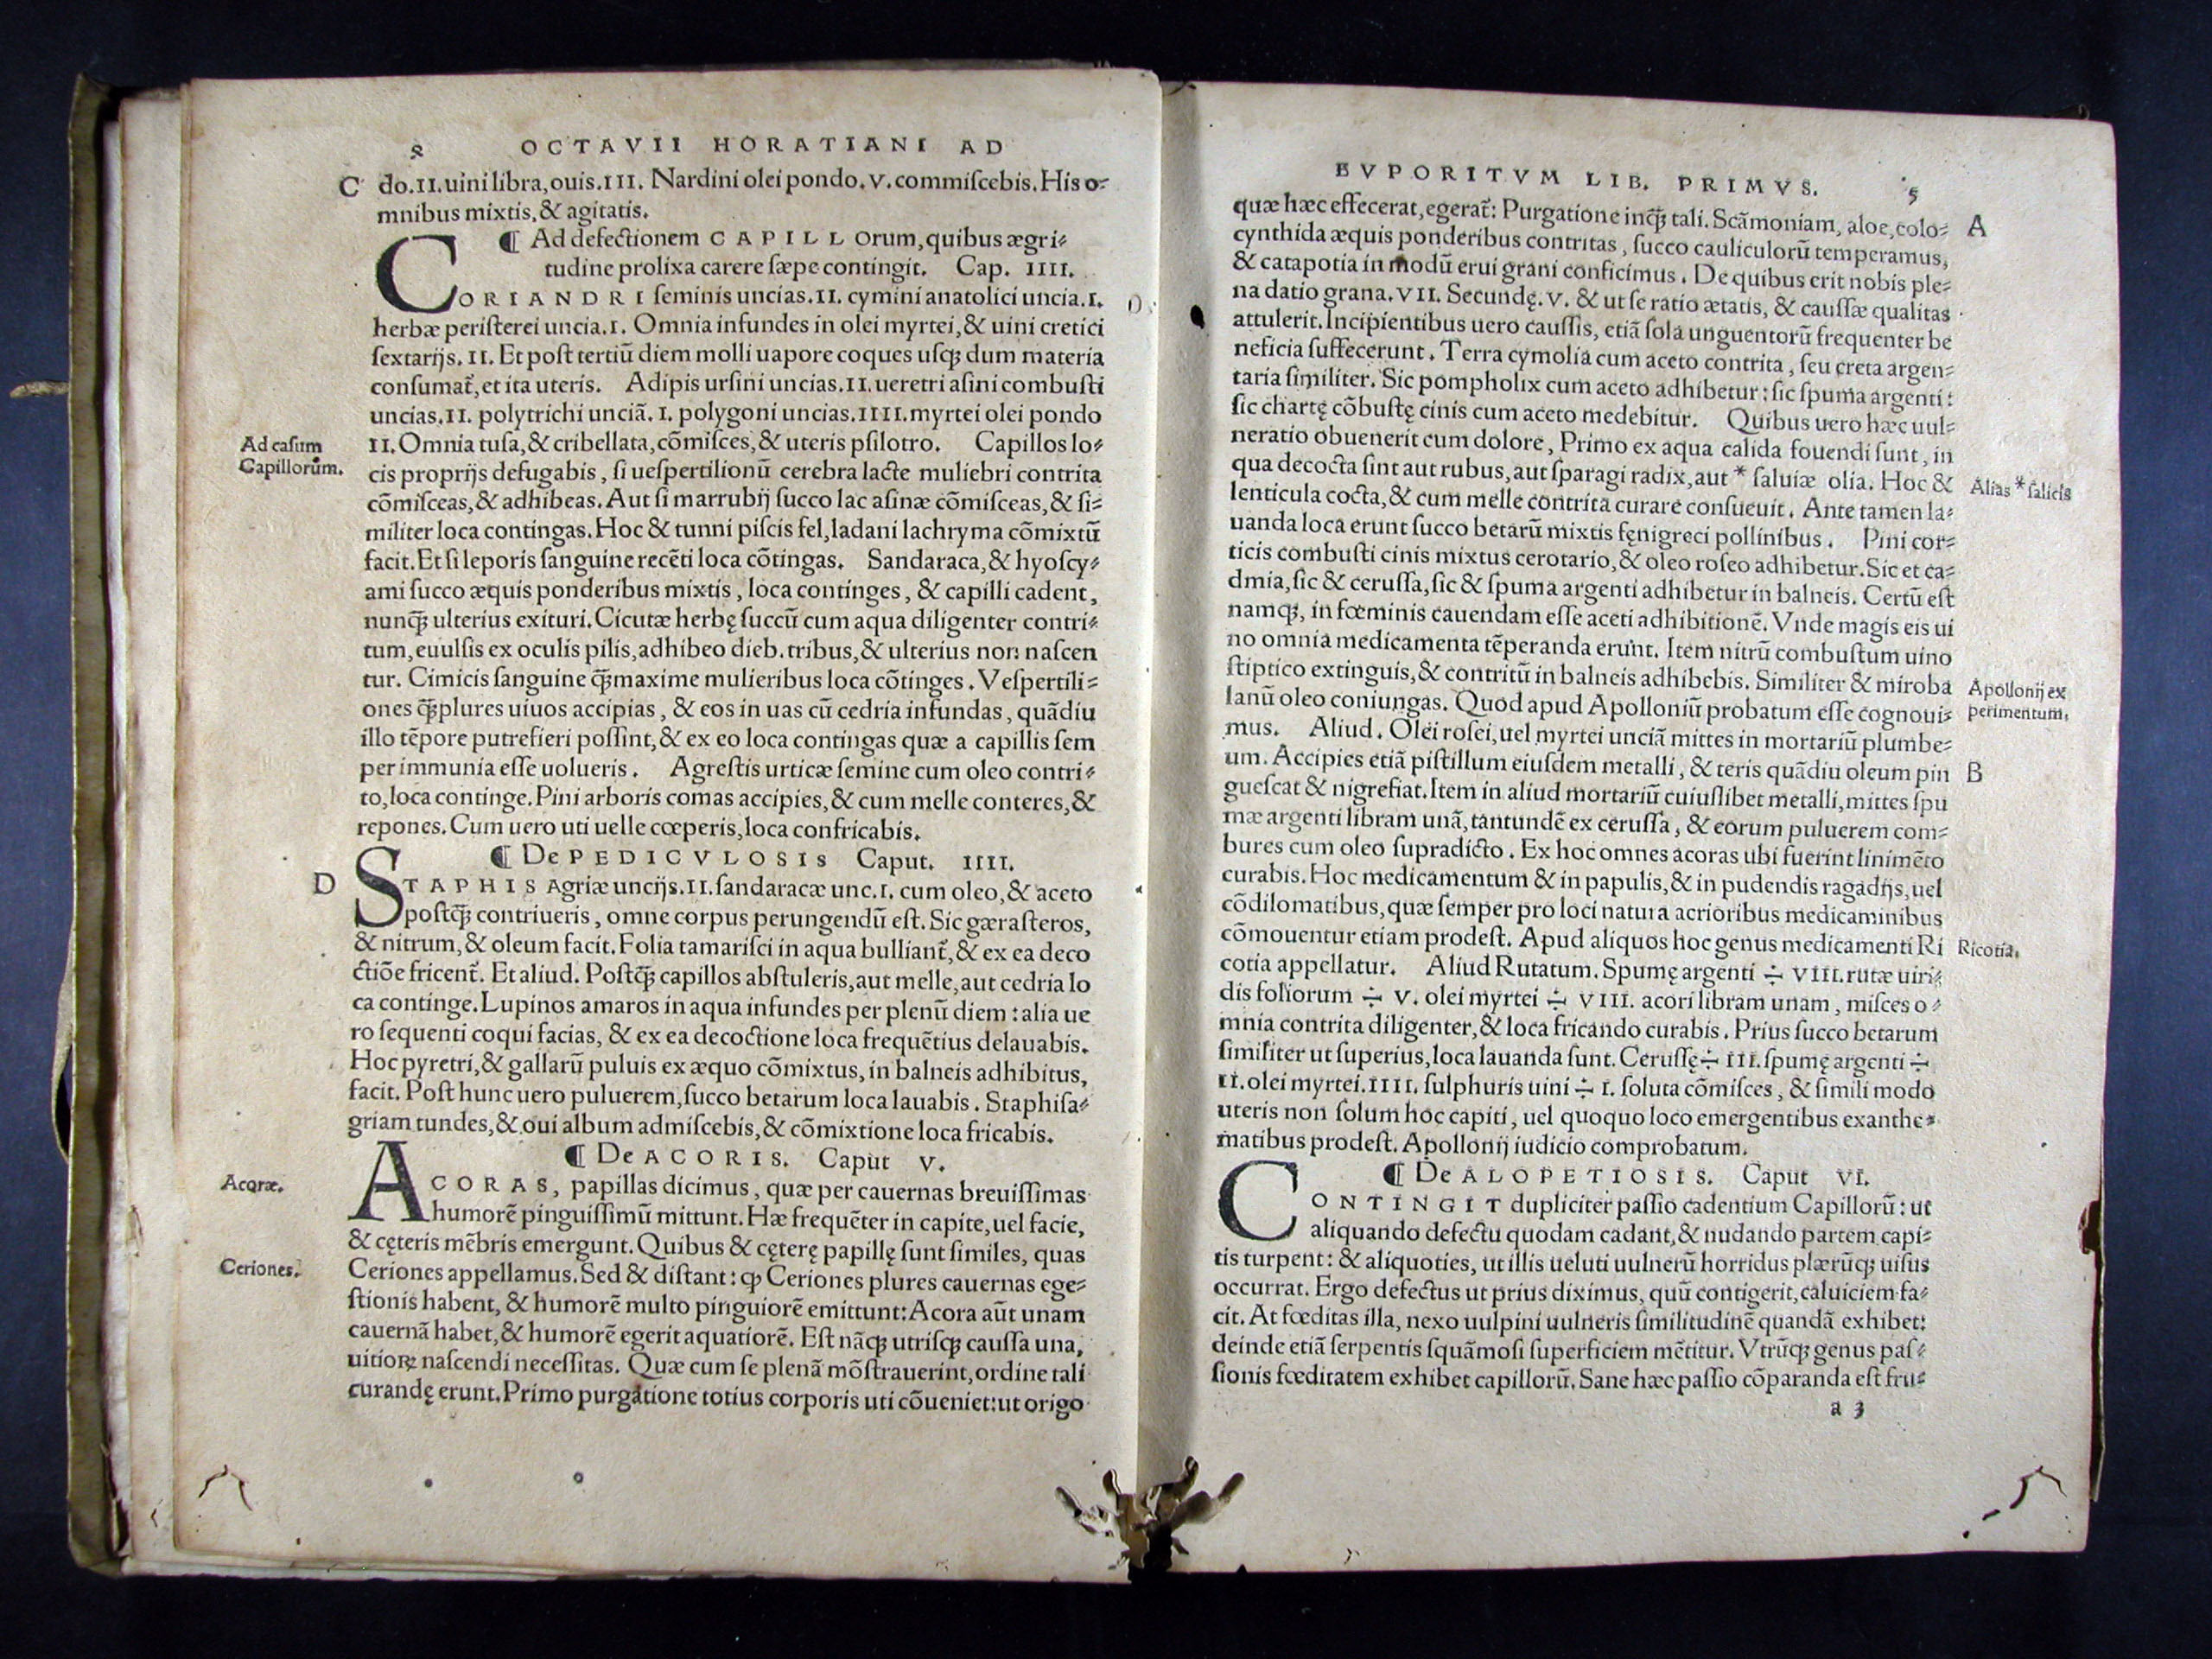 8 OCTAVII HORATIANI AD
C do.II.uini libra, ouis.III. Nardini olei pondo.V.commiſcebis.His o⸗
mnibus mixtis,& agitatis.
¶ Ad defectionem CAPILLOrum,quibus ægri⸗
tudine prolixa carere ſæpe contingit. Cap. IIII.
CORIANDRI ſeminis uncias.II. cymini anatolici uncia.I.
herbæ periſterei uncia.I. Omnia infundes in olei myrtei,& uini cretici
ſextarijs.II. Et poſt tertiũ diem molli uapore coques uſqꝫ dum materia
conſumat᷑,et ita uteris. Adipis urſini uncias.II.ueretri aſini combuſti
uncias.II. polytrichi unciã.I. polygoni uncias.IIII.myrtei olei pondo
Ad caſum
Capillorum.
II.Omnia tuſa,& cribellata,cõmiſces,& uteris pſilotro. Capillos lo⸗
cis proprijs defugabis, ſi ueſpertilionũ cerebra lacte muliebri contrita
cõmiſceas,& adhibeas.Aut ſi marrubij ſucco lac aſinæ cõmiſceas,& ſi⸗
militer loca contingas.Hoc & tunni piſcis fel,ladani lachryma cõmixtũ
facit.Et ſi leporis ſanguine recẽti loca cõtingas. Sandaraca,& hyoſcy⸗
ami ſucco æquis ponderibus mixtis, loca continges, & capilli cadent,
nunq̃ꝫ ulterius exituri.Cicutæ herbę ſuccũ cum aqua diligenter contri⸗
tum,euulſis ex oculis pilis,adhibeo dieb.tribus,& ulterius non naſcen
tur. Cimicis ſanguine q̃ꝫmaxime mulieribus loca cõtinges. Veſpertili⸗
ones q̃ꝫplures uiuos accipias, & eos in uas cũ cedria infundas, quãdiu
illo tẽpore putrefieri poſſint,& ex eo loca contingas quæ a capillis ſem
per immunia eſſe uolueris. Agreſtis urticæ ſemine cum oleo contri⸗
to,loca continge.Pini arboris comas accipies,& cum melle conteres,&
repones.Cum uero uti uelle cœperis,loca confricabis.
¶ De PEDICVLOSIS Caput. IIII.
D STAPHIS Agriæ uncijs.II.ſandaracæ unc.I. cum oleo,& aceto
poſtq̃ꝫ contriueris, omne corpus perungendũ eſt. Sic gæraſteros,
& nitrum,& oleum facit.Folia tamariſci in aqua bulliant᷑,& ex ea deco
ctiõe fricent᷑. Et aliud. Poſtq̃ꝫ capillos abſtuleris,aut melle,aut cedria lo
ca continge.Lupinos amaros in aqua infundes per plenũ diem:alia ue
ro ſequenti coqui facias, & ex ea decoctione loca frequẽtius delauabis.
Hoc pyretri,& gallarũ puluis ex æquo cõmixtus,in balneis adhibitus,
facit. Poſt hunc uero puluerem,ſucco betarum loca lauabis. Staphiſa⸗
griam tundes,& oui album admiſcebis,& cõmixtione loca fricabis.
¶ De ACORIS. Caput V.
Acoræ.
ACORAS, papillas dicimus, quæ per cauernas breuiſſimas
humorẽ pinguiſſimũ mittunt.Hæ frequẽter in capite,uel facie,
& cęteris mẽbris emergunt.Quibus & cęterę papillę ſunt ſimiles, quas
Ceriones.
Ceriones appellamus.Sed & diſtant: ꝙ Ceriones plures cauernas ege⸗
ſtionis habent, & humorẽ multo pinguiorẽ emittunt:Acora aũt unam
cauernã habet,& humorẽ egerit aquatiorẽ. Eſt nãqꝫ utriſqꝫ cauſſa una,
uitioꝝ naſcendi neceſſitas. Quæ cum ſe plenã mõſtrauerint,ordine tali
curandę erunt.Primo purgatione totius corporis uti cõueniet:ut origo
EVPORITVM LIB. PRIMVS. 5
quæ hæc effecerat,egerat᷑: Purgatione inq̃ꝫ tali. Scãmoniam, aloe,colo⸗ A
cynthida æquis ponderibus contritas, ſucco cauliculorũ temperamus,
& catapotia in modũ erui grani conficimus. De quibus erit nobis ple⸗
na datio grana.VII. Secundę.V. & ut ſe ratio ætatis, & cauſſæ qualitas
attulerit.Incipientibus uero cauſſis, etiã ſola unguentorũ frequenter be
neficia ſuffecerunt. Terra cymolia cum aceto contrita, ſeu creta argen⸗
taria ſimiliter. Sic pompholix cum aceto adhibetur:ſic ſpuma argenti:
ſic chartę cõbuſtę cinis cum aceto medebitur. Quibus uero hæc uul⸗
neratio obuenerit cum dolore, Primo ex aqua calida fouendi ſunt, in
qua decocta ſint aut rubus,aut ſparagi radix,aut * ſaluiæ olia. Hoc &
Alias * ſalicis
lenticula cocta,& cum melle contrita curare conſueuit. Ante tamen la⸗
uanda loca erunt ſucco betarũ mixtis fęnigreci pollinibus. Pini cor⸗
ticis combuſti cinis mixtus cerotario,& oleo roſeo adhibetur.Sic et ca⸗
dmia,ſic & ceruſſa,ſic & ſpuma argenti adhibetur in balneis. Certũ eſt
namqꝫ, in fœminis cauendam eſſe aceti adhibitionẽ. Vnde magis eis ui
no omnia medicamenta tẽperanda erunt. Item nitrũ combuſtum uino
ſtiptico extinguis,& contritũ in balneis adhibebis. Similiter & miroba
Apollonij ex
perimentum.
lanũ oleo coniungas. Quod apud Apolloniũ probatum eſſe cognoui⸗
mus. Aliud. Olei roſei,uel myrtei unciã mittes in mortariũ plumbe⸗
um. Accipies etiã piſtillum eiuſdem metalli, & teris quãdiu oleum pin B
gueſcat & nigrefiat.Item in aliud mortariũ cuiuſlibet metalli,mittes ſpu
mæ argenti libram unã, tantundẽ ex ceruſſa, & eorum puluerem com⸗
bures cum oleo ſupradicto. Ex hoc omnes acoras ubi fuerint linimẽto
curabis. Hoc medicamentum & in papulis,& in pudendis ragadijs,uel
cõdilomatibus,quæ ſemper pro loci natura acrioribus medicaminibus
cõmouentur etiam prodeſt. Apud aliquos hoc genus medicamenti Ri
Ricotia.
cotia appellatur. Aliud Rutatum. Spumę argenti ÷ VIII.rutæ uiri⸗
dis foliorum ÷ V. olei myrtei ÷ VIII. acori libram unam, miſces o⸗
mnia contrita diligenter,& loca fricando curabis. Prius ſucco betarum
ſimiliter ut ſuperius,loca lauanda ſunt. Ceruſſę ÷ III.ſpumę argenti ÷
II.olei myrtei.IIII. ſulphuris uini ÷ I. ſoluta cõmiſces, & ſimili modo
uteris non ſolum hoc capiti, uel quoquo loco emergentibus exanthe⸗
matibus prodeſt. Apollonij iudicio comprobatum.
¶ De ALOPETIOSIS. Caput VI.
CONTINGIT dupliciter paſſio cadentium Capillorũ: ut
aliquando defectu quodam cadant,& nudando partem capi⸗
tis turpent: & aliquoties, ut illis ueluti uulnerũ horridus plærũqꝫ uiſus
occurrat. Ergo defectus ut prius diximus, quũ contigerit,caluiciem fa⸗
cit. At fœditas illa, nexo uulpini uulneris ſimilitudinẽ quandã exhibet:
deinde etiã ſerpentis ſquãmoſi ſuperficiem mẽtitur. Vtrũqꝫ genus paſ⸗
ſionis fœditatem exhibet capillorũ. Sane hæc paſſio cõparanda eſt fru⸗
a 3